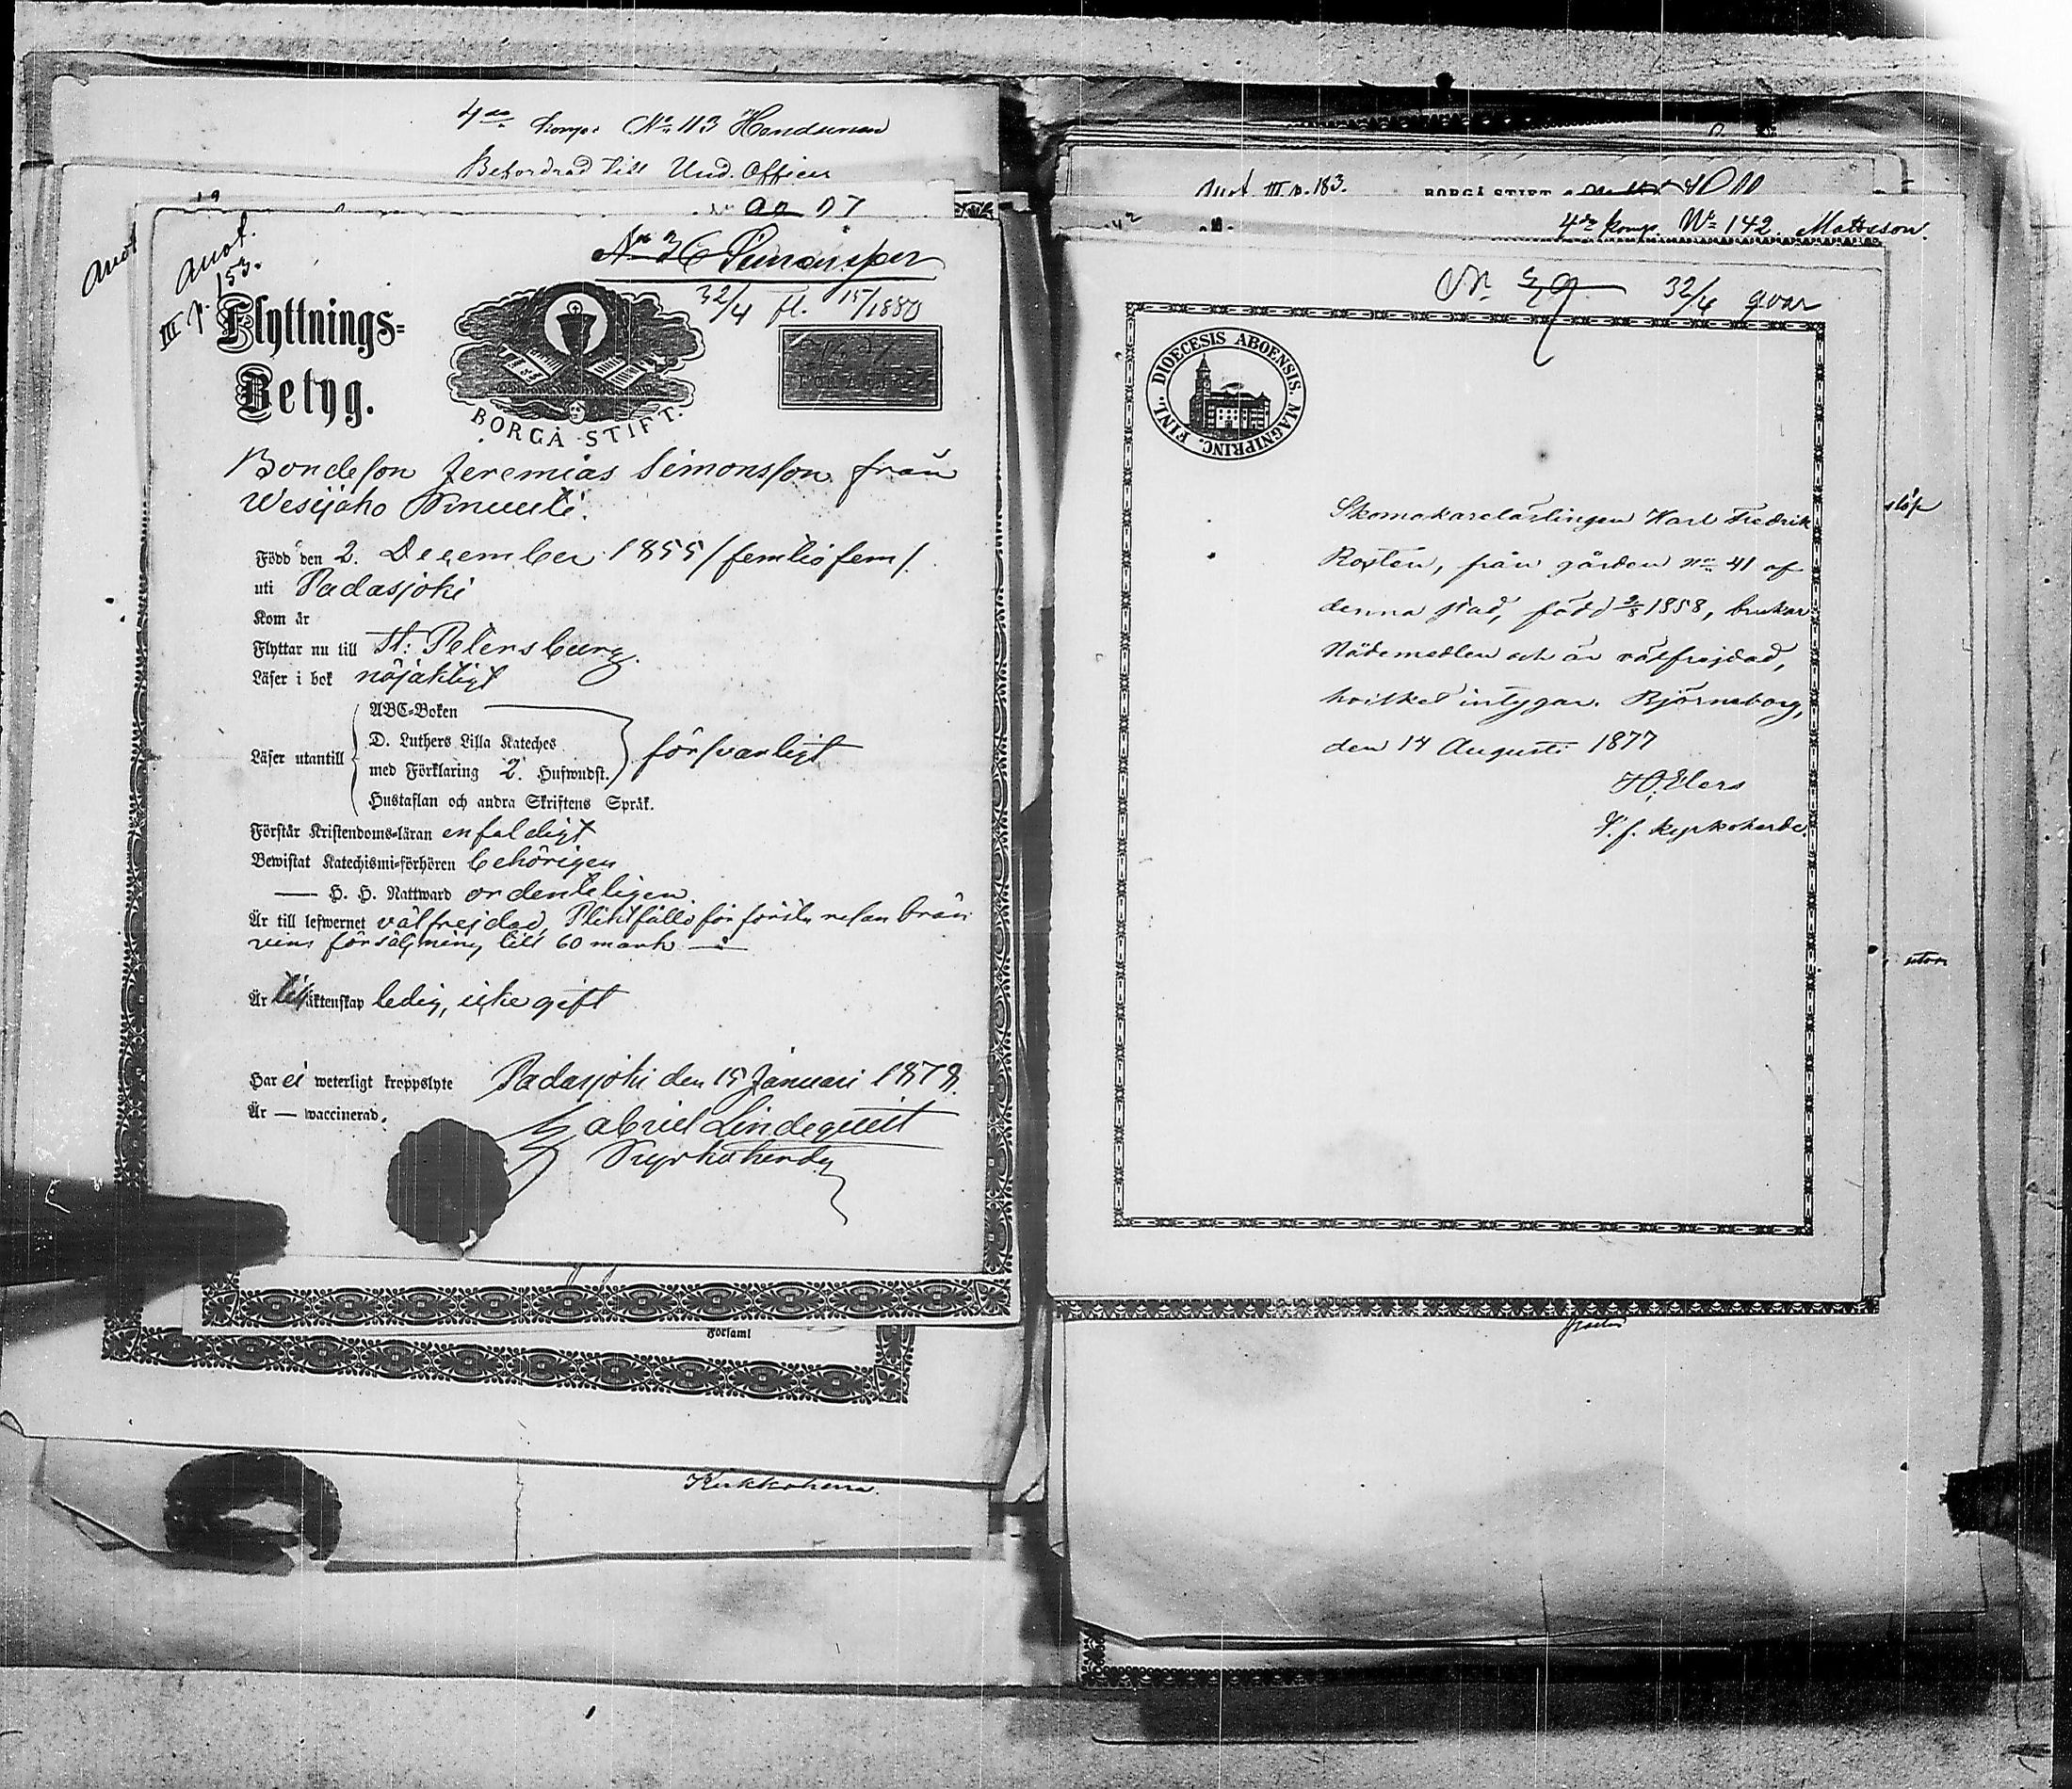 4de komp. No 113 Handunen
Befordrad till Und. Officer
Anot
Anot.
III p. 153.
No 36
32/4 fl. 15/1880
Flyttnings-
Betyg.
BORGÅ STIFT.
Bondeson Jeremias Simonsson från
Wesijako
Född den 2. December 1855 /femtiofem/.
uti Padasjoki
Kom år
Flyttar nu till St. Petersburg.
Läser i bok nöjaktigt
ABC-Boken
D. Luthers Lilla Kateches
Läser utantill
med Förklaring 2. Hufwudst.
försvarligt
Hustaflan och andra Skriftens Språk.
Förstår Kristendoms-läran enfaldigt
Bewistat Katechismi-förhören behörigen
— H. H. Nattward ordenteligen.
Är till lefwernet välfrejdad, Pliktfälld för första resan brän
vins försäljning till 60 mark
Är till äktenskap ledig, icke gift
Har ei weterligt kroppslyte
Padasjoki den 15 Januari 1878.
Är — waccinerad.
Gabriel Lindequist
Kyrkoherde
Församl
Kirkkoherra.
Anot III p. 183.
BORGÅ STIFT
4de komp. No 142. Mattsson.
No 32/4 qvar
DIOECESIS ABOENSIS MAGNIPRINC. FINL.
Skomakarelärlingen Karl Fredrik
Rostén, från gården no 41 af
denna stad, född 2/8 1858, brukar
Nådemedlen och är välfrejdad,
hvilket intygar. Björneborg,
den 14 Augusti 1877
V. f. kyrkoherde.